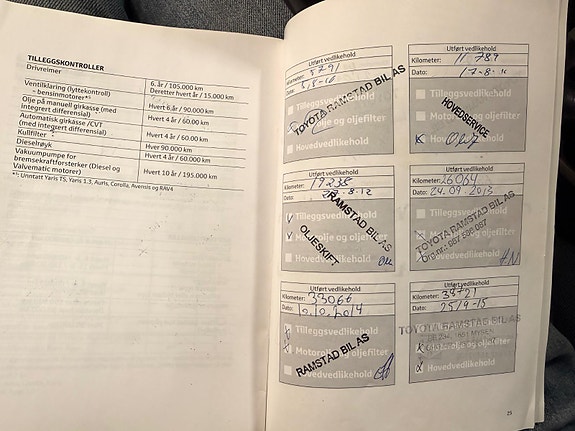 TILLEGGSKONTROLLER
Drivreimer
6. år / 105.000 km
Deretter hvert år / 15.000 km
Ventilklaring (lyttekontroll)
– bensinmotorer*¹
Hvert 6.år / 90.000 km
Olje på manuell girkasse (med
integrert differensial)
Hvert 4 år / 60.00 km
Automatisk girkasse /CVT
(med integrert differensial)
Hvert 4 år / 60.00 km
Kullfilter
Hver 90.000 km
Dieselrøyk
Hvert 4 år / 60.000 km
Vakuumpumpe for
bremsekraftforsterker (Diesel og
Valvematic motorer)
Hvert 10 år / 195.000 km
*¹: Unntatt Yaris TS, Yaris 1.3, Auris, Corolla, Avensis og RAV4
Utført vedlikehold
Kilometer: 5291
Dato:
TOYOTA RAMSTAD BIL AS
Utført vedlikehold
Kilometer: 11 789
Dato: 17-8-11
HOVEDSERVICE
Utført vedlikehold
Kilometer: 19235
Dato: 28-8-12
Tilleggsvedlikehold
Motorolje og oljefilter
Hovedvedlikehold
RAMSTAD BIL AS
OLJESKIFT
Utført vedlikehold
Kilometer: 26064
Dato: 24.09.2013
TOYOTA RAMSTAD BIL AS
Hovedvedlikehold
HN
Utført vedlikehold
Kilometer: 33066
Dato: 10.10.2014
Tilleggsvedlikehold
Motorolje og oljefilter
Hovedvedlikehold
RAMSTAD BIL AS
Utført vedlikehold
Kilometer: 39721
Dato: 25/9-15
TOYOTA RAMSTAD BIL AS
Motorolje og oljefilter
Hovedvedlikehold
25